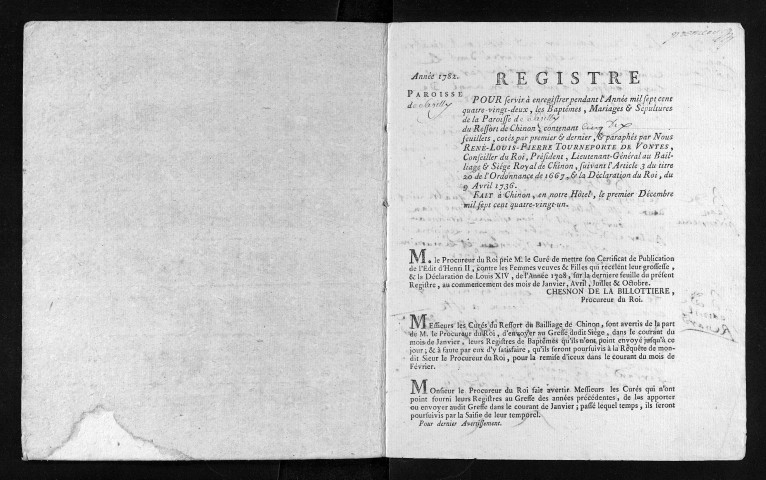 Année 1782.
REGISTRE
PAROISSE
de
POUR servir à enregistrer pendant l'Année mil sept cent
quatre-vingt-deux, les Baptêmes, Mariages & Sépultures
de la Paroisse de
du Ressort de Chinon, contenant
feuillets, cotés par premier & dernier, & paraphés par Nous
RENÉ-LOUIS-PIERRE TOURNEPORTE DE VONTES,
Conseiller du Roi, Président, Lieutenant-Général au Bail-
liage & Siége Royal de Chinon, suivant l'Article 3 du titre
20 de l'Ordonnance de 1667, & la Déclaration du Roi, du
9 Avril 1736.
FAIT à Chinon, en notre Hôtel, le premier Décembre
mil sept cent quatre-vingt-un.
M. le Procureur du Roi prie M. le Curé de mettre son Certificat de Publication
de l'Edit d'Henri II, contre les Femmes veuves & Filles qui recélent leur grossesse,
& la Déclaration de Louis XIV, de l'Année 1708, sur la derniere feuille du présent
Registre, au commencement des mois de Janvier, Avril, Juillet & Octobre.
CHESNON DE LA BILLOTTIERE,
Procureur du Roi.
MEssieurs les Curés du Ressort du Bailliage de Chinon, sont avertis de la part
de M. le Procureur du Roi, d'envoyer au Greffe dudit Siége, dans le courant du
mois de Janvier, leurs Registres de Baptêmes qu'ils n'ont point envoyé jusqu'à ce
jour; & à faute par eux d'y satisfaire, qu'ils seront poursuivis à la Requête de mon-
dit Sieur le Procureur du Roi, pour la remise d'iceux dans le courant du mois de
Février.
MOnsieur le Procureur du Roi fait avertir Messieurs les Curés qui n'ont
point fourni leurs Registres au Greffe des années précédentes, de les apporter
ou envoyer audit Greffe dans le courant de Janvier; passé lequel temps, ils seront
poursuivis par la Saisie de leur temporel.
Pour dernier Avertissement.